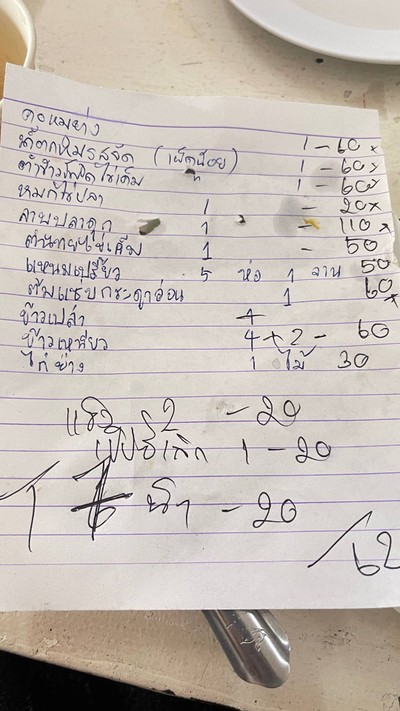 คอหมูย่าง 1 - 60 x
น้ำตกหมูรสจัด (เผ็ดน้อย) 1 - 60 x
ตำข้าวโพดไข่เค็ม 1 - 60 x
หมกไข่ปลา 1 - 20 x
ลาบปลาดุก 1 - 110 x
ตำไทยไข่เค็ม 1 - 50
แหนมเปรี้ยว 5 ห่อ 1 จาน 50
ต้มแซ่บกระดูกอ่อน 1 60 x
ข้าวเปล่า
ข้าวเหนียว 4 + 2 - 60
ไก่ย่าง 1 ไม้ 30
2 - 20
เป๊ปซี่เล็ก 1 - 20
น้ำ - 20
/62